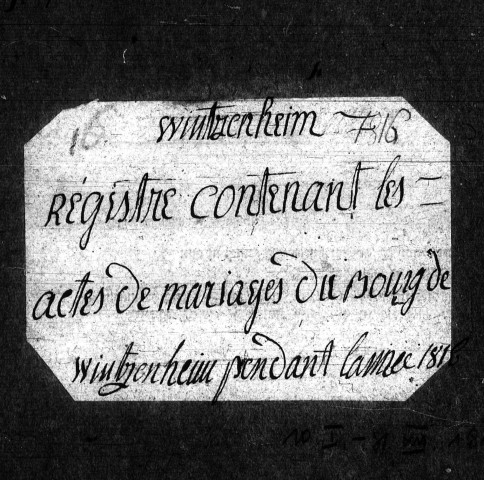 16 Wintzenheim 16
Régistre contenant les
actes de mariages du Bourg de
Wintzenheim pendant l'année